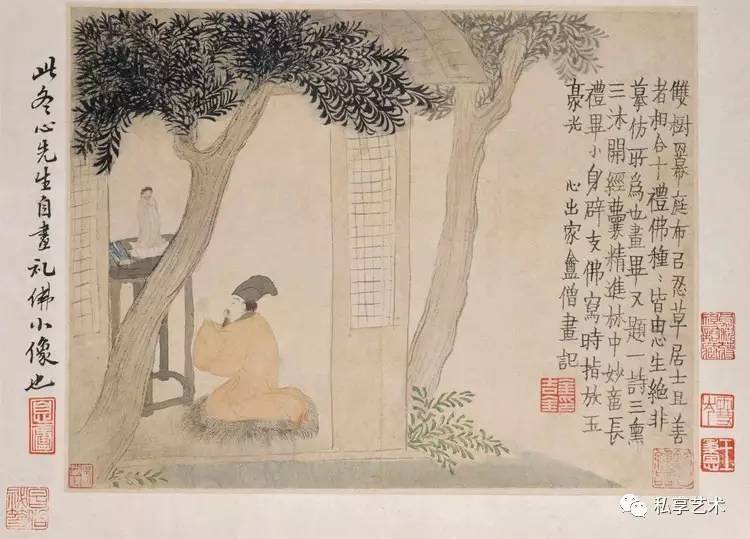 雙樹幕庭布㠯忍草居士且善
者相合十禮佛種〻皆由心生絕非
摹仿所爲也畫畢又題一詩三熏
三沐開經囊精進林中妙長
禮畢小身辟支佛寫時指放玉
豪光 心出家盦僧畫記
此冬心先生自畫礼佛小像也
私享艺术